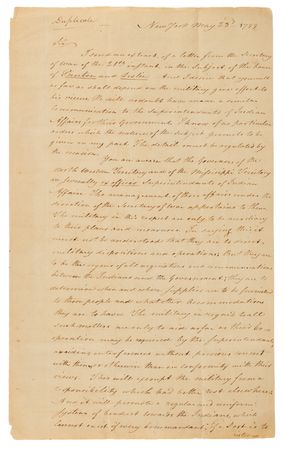 Duplicate
New York May 23d. 1799
Sir
I send an extract of a letter from the Secretary
of War of the 21st instant on the subject of the
of Panton and Leslie. And desire that you will
so far as shall depend on the military give effect to
his views. He will no doubt have made a similar
communication to the Superintendants of Indian
Affairs for this Government. I know of no particular
orders which the nature of the subject permits to be
given on my part. The detail must be regulated by
the occasion.
You are aware that the Governors of the
North Western Territory and of the Mississippi Territory
are severally ex officio Superintendants of Indian
Affairs. The management of those affairs under the
direction of the Secretary of War appertains to them.
The military in this respect are only to be auxiliary
to their plans and measures. In saying this, it
must not be understood that they are to direct
military dispositions and operations; But they are
to be the organs of all negociations and communications
between the Indians and the government; they are to
determine when and where supplies are to be furnished
to those people and what other accommodations
they are to have. The military in regard to all
such matters are only to aid as far as their Co
operation may be required by the Superintendants;
avoiding interferences without previous concert
with them, or otherwise than in conformity with their
views. This will exempt the military from a
responsibility which had better rest elsewhere:
And it will promote a regular and uniform
system of conduct towards the Indians, which
cannot exist if every commandant of a Post is to